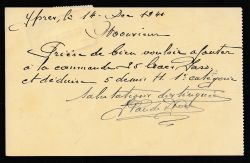 Ypres, le 14 Dec 1911
Monsieur
Prière de bien vouloir ajouter
à la commande 25 leurs
et déduire 5 demi H 1e catégorie
Salutations distinguées